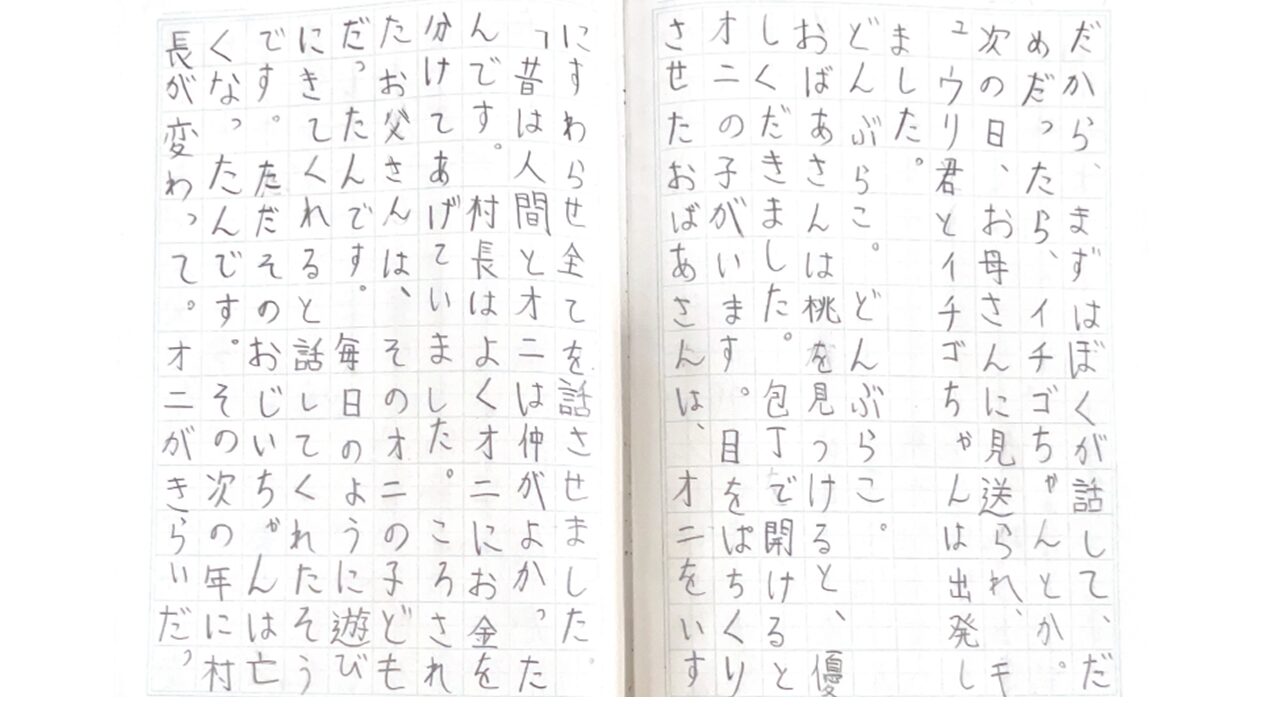 だから、まずはぼくが話して、だ
めだったら、イチゴちゃんとか。
次の日、お母さんに見送られ、キ
ュウリ君とイチゴちゃんは出発し
ました。
どんぶらこ。どんぶらこ。
おばあさんは桃を見つけると、優
しくだきました。包丁で開けると
オニの子がいます。目をぱちくり
させたおばあさんは、オニをいす
にすわらせ全てを話させました。
「昔は人間とオニは仲がよかった
んです。村長はよくオニにお金を
分けてあげていました。ころされ
たお父さんは、そのオニの子ども
だったんです。毎日のように遊び
にきてくれると話してくれたそう
です。ただそのおじいちゃんは亡
くなったんです。その次の年に村
長が変わって。オニがきらいだっ